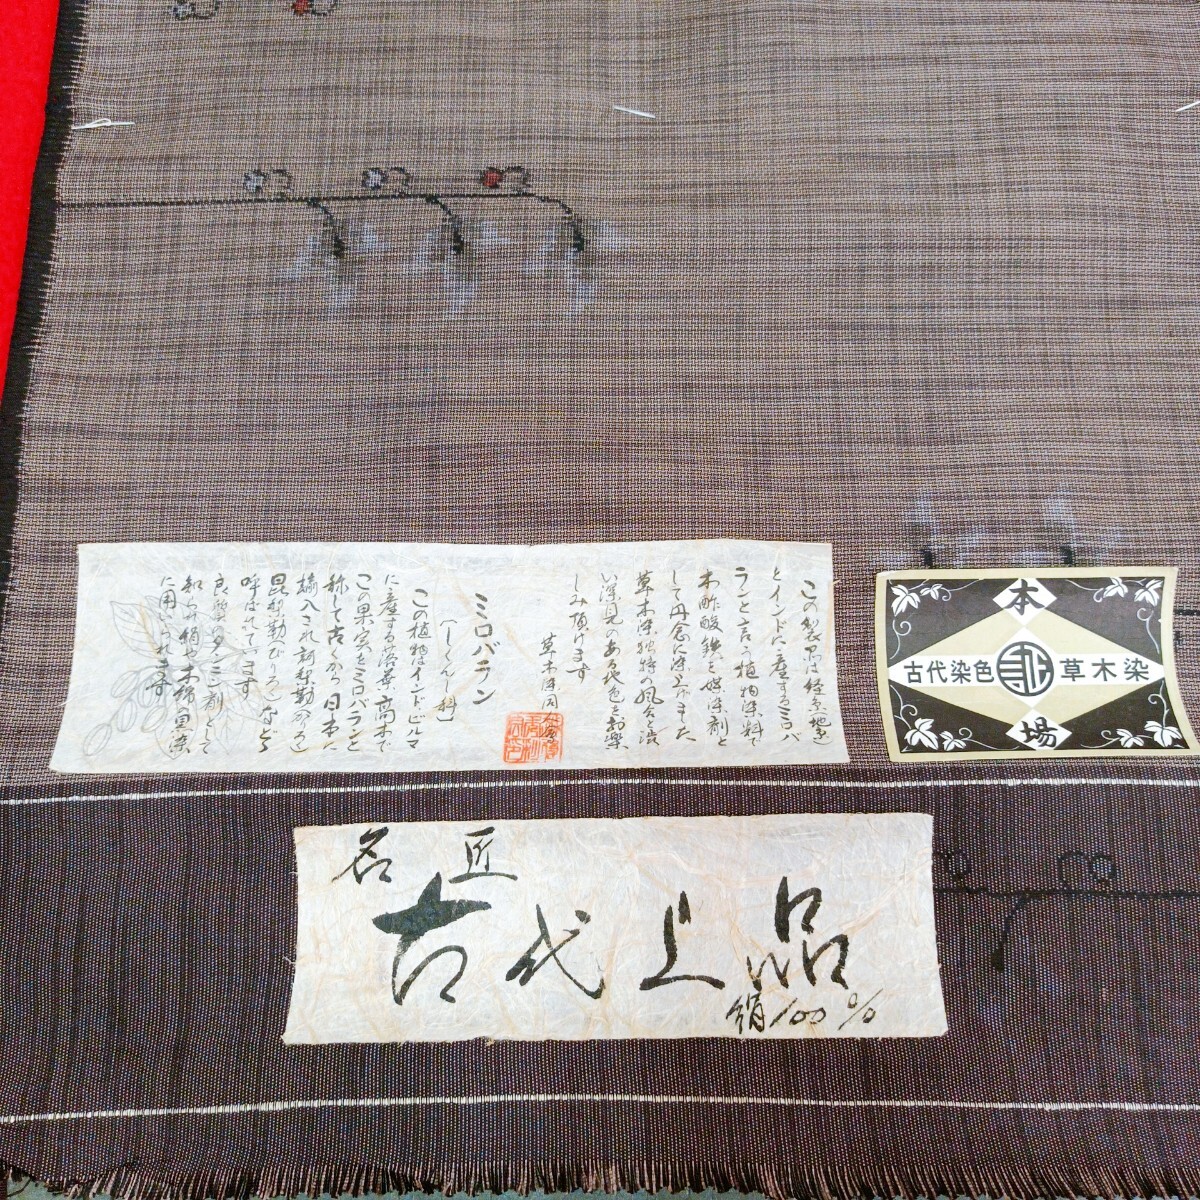 この製品は経糸(地糸)
とインドに産するミロバ
ランと言う植物染料で
木酢酸鉄を媒染剤と
して丹念に染めました
草木染独特の風合と渋
い深見のある色をお楽
しみ頂けます
草木染

ミロバラン
(しくんし科)
この植物はインドビルマ
に産する落葉高木で
この果実をミロバランと
称して古くから日本に
輸入され訶梨勒(かりろく)
昆梨勒(びりろく)などと
呼ばれています
良質のタンニン剤として
知られ絹や木綿の黒染
に用いられます

本
古代染色
草木染
場

名匠
古代上品
絹100%